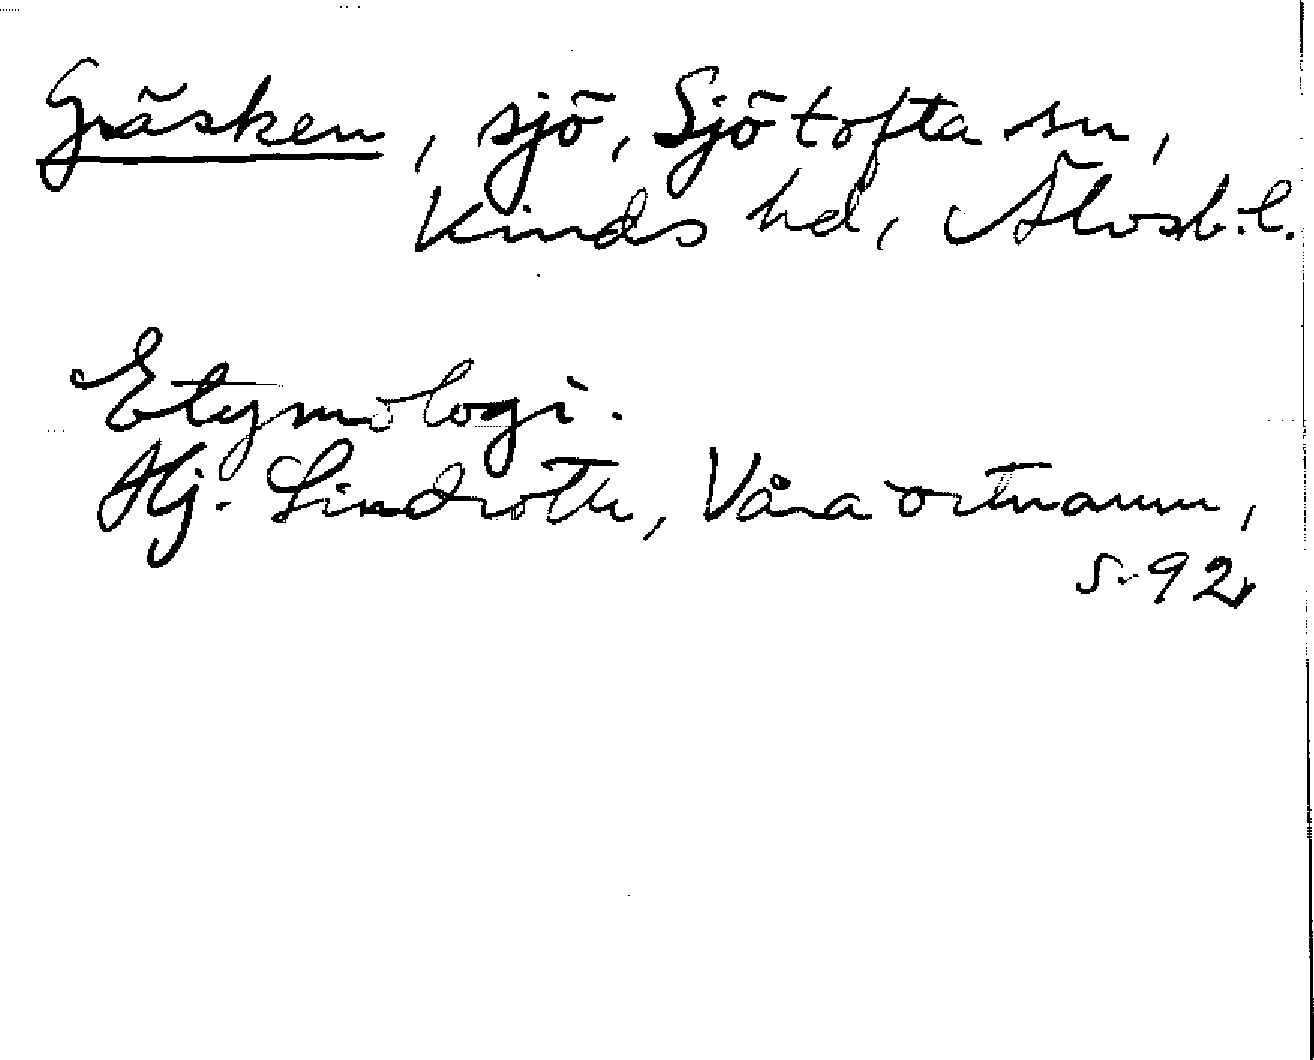 Gräsken, sjö, Sjötofta sn,
Kinds hd, Älvsb. l.
Etymologi.
Hj. Lindroth, Våra ortnamn,
s. 92